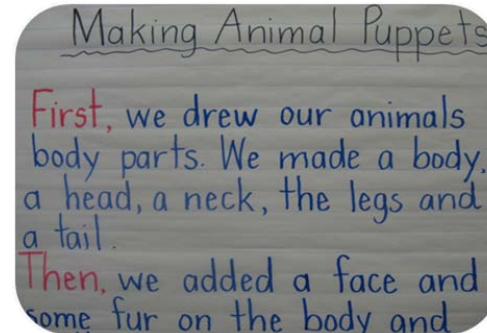 Making Animal Puppets
First, we drew our animals
body parts. We made a body,
a head, a neck, the legs and
a tail.
Then, we added a face and
some fur on the body and